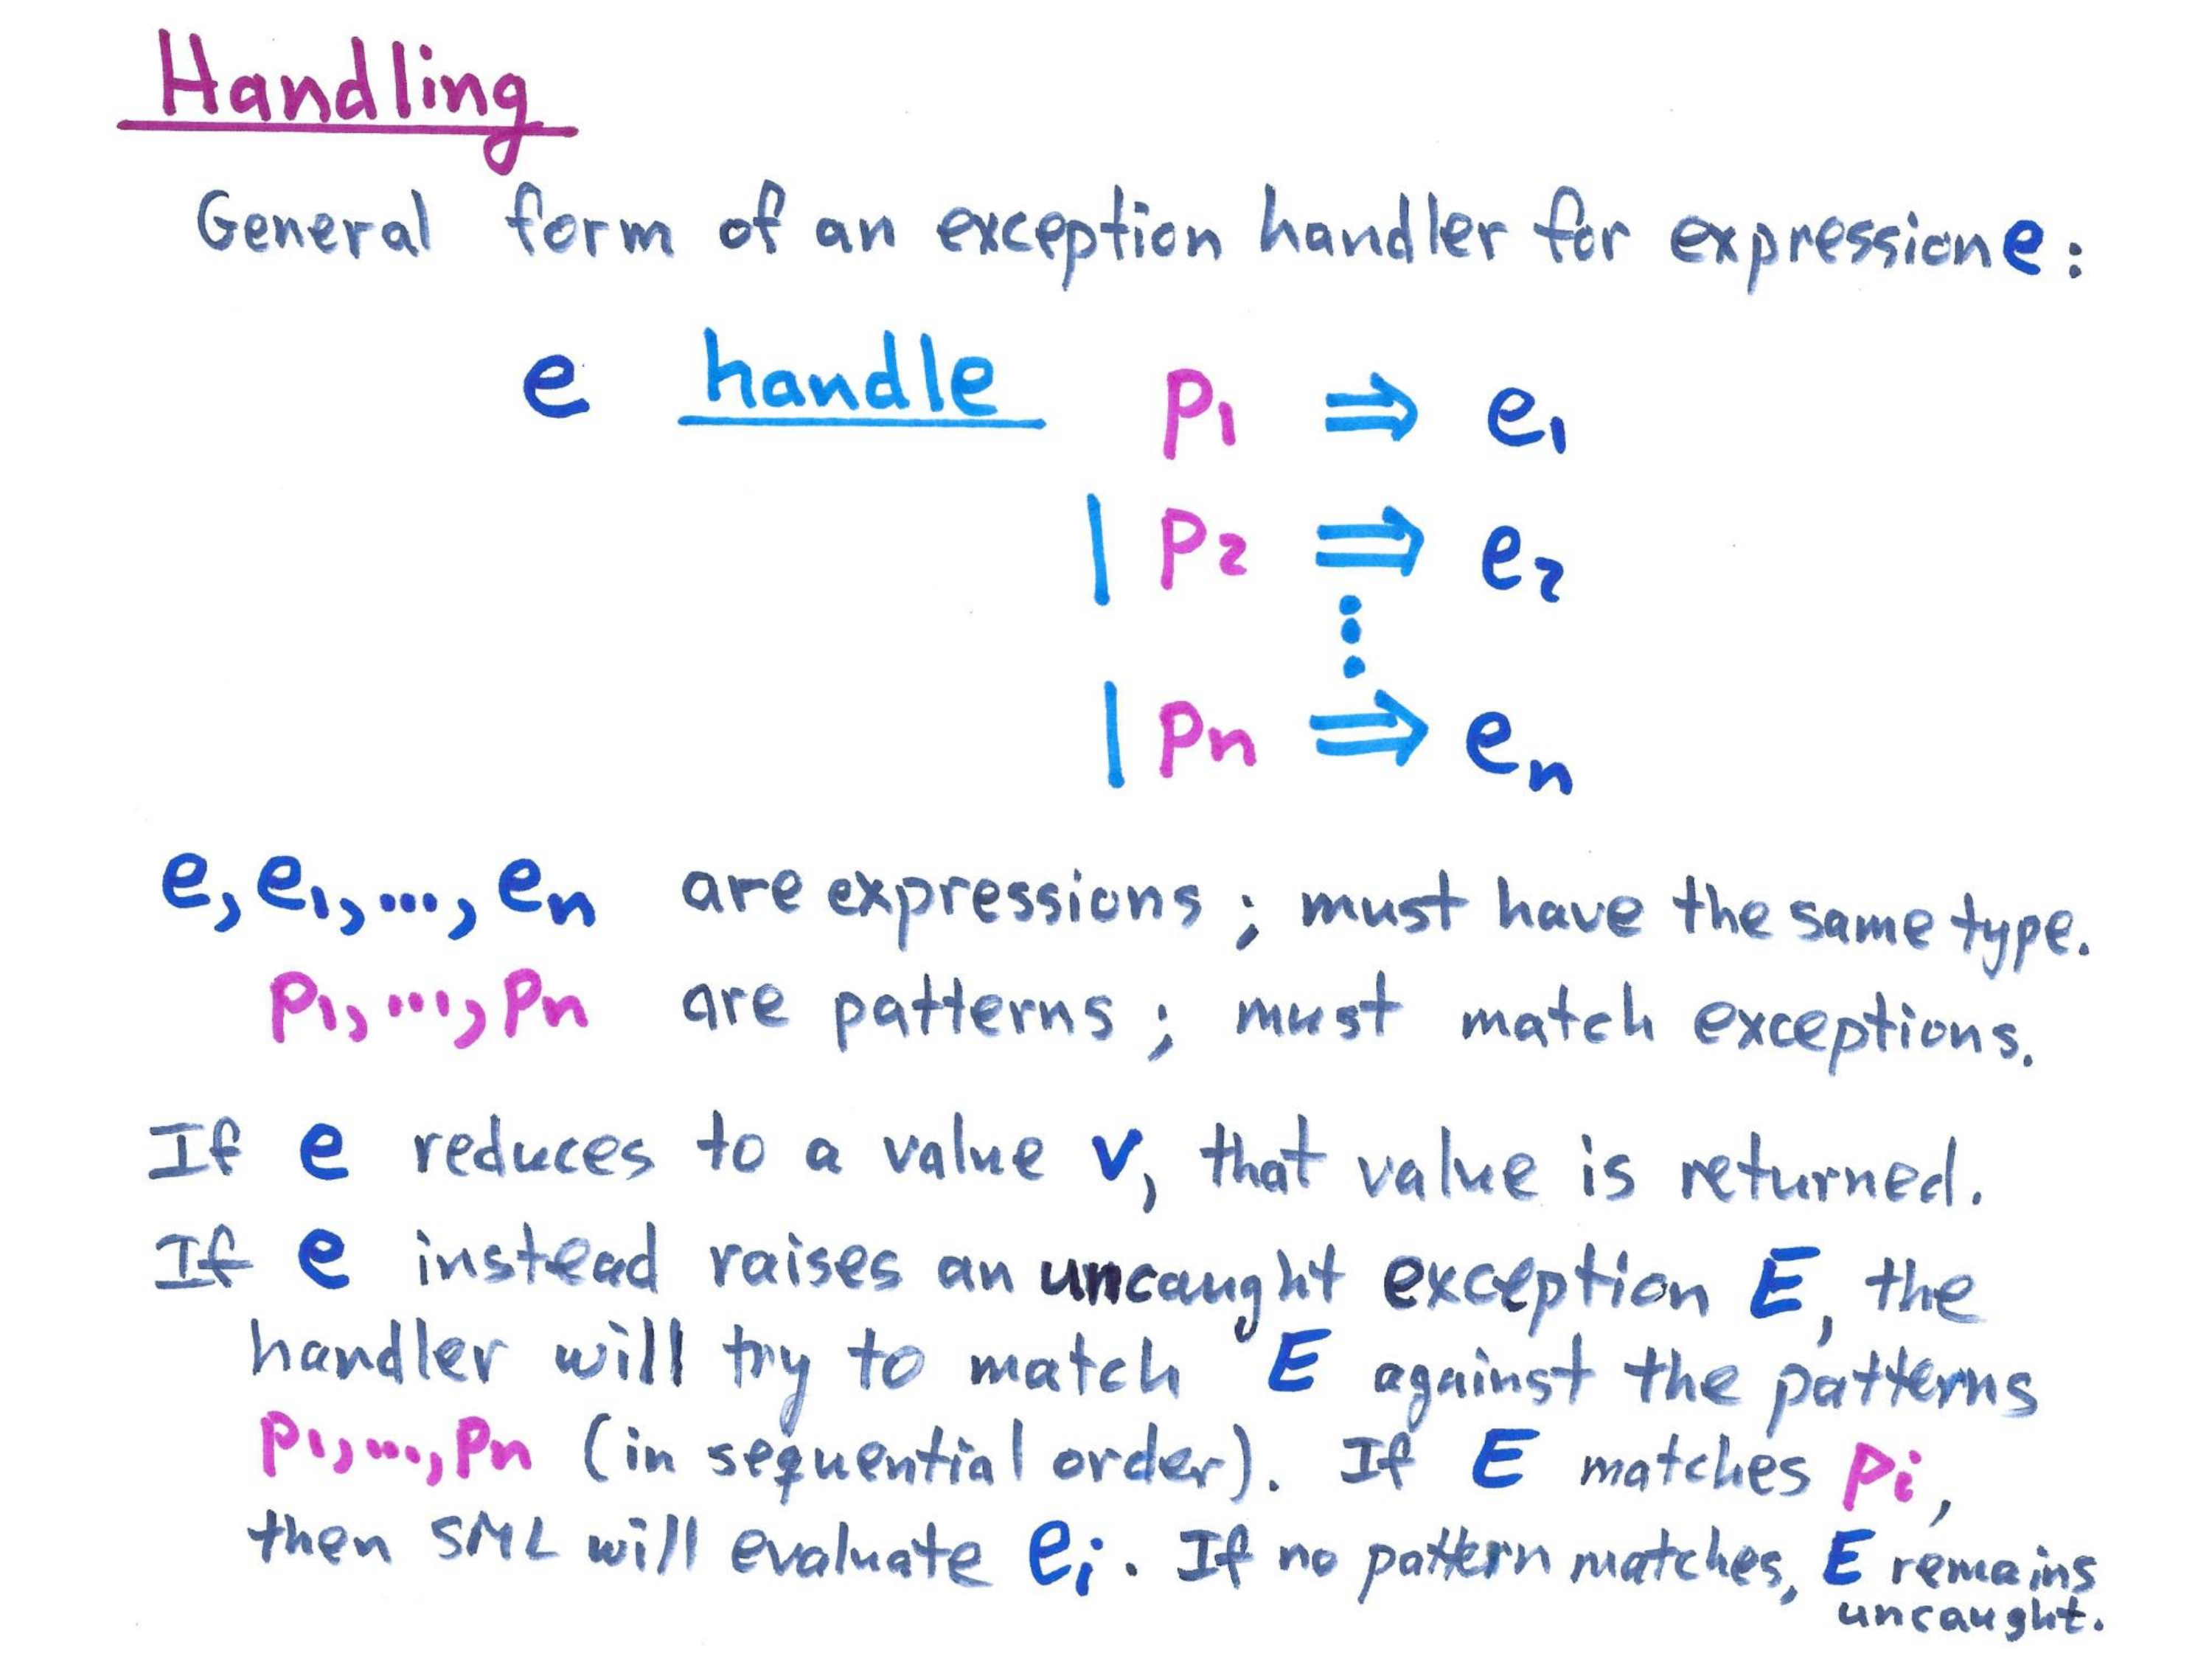 Handling
General form of an exception handler for expression e:
e handle p₁ ⇒ e₁
| p₂ ⇒ e₂
⋮
| pₙ ⇒ eₙ
e, e₁, ..., eₙ are expressions; must have the same type.
p₁, ..., pₙ are patterns; must match exceptions.
If e reduces to a value v, that value is returned.
If e instead raises an uncaught exception E, the
handler will try to match E against the patterns
p₁, ..., pₙ (in sequential order). If E matches pᵢ,
then SML will evaluate eᵢ. If no pattern matches, E remains
uncaught.